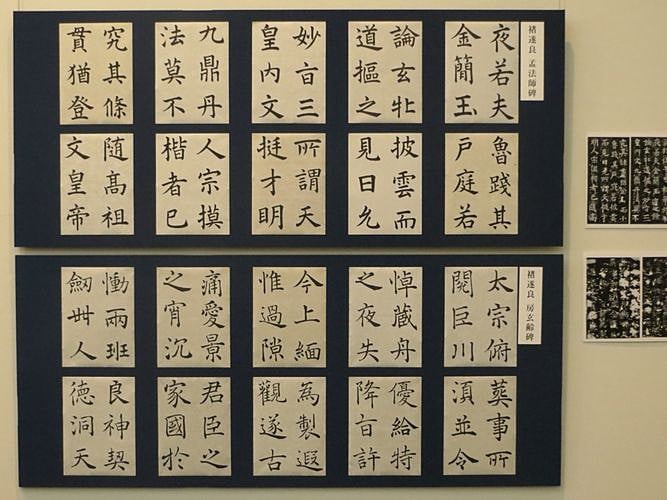 褚遂良 孟法師碑
夜若夫
金簡玉
論玄牝
道摳之
妙亩三
皇内文
九鼎丹
法莫不
究其條
貫猶登
魯踐其
戸庭若
披雲而
見日允
所謂天
挺才明
人宗摸
楷者已
随高祖
文皇帝
褚遂良 房玄齢碑
太宗俯
閲巨川
悼蔵舟
之夜失
今上緬
惟過隙
痛愛景
之宵沉
慟兩班
劔丗人
葬事所
湏並令
優給特
降㫖許
為製遐
觀遂古
君臣之
家國於
良神契
徳洞天